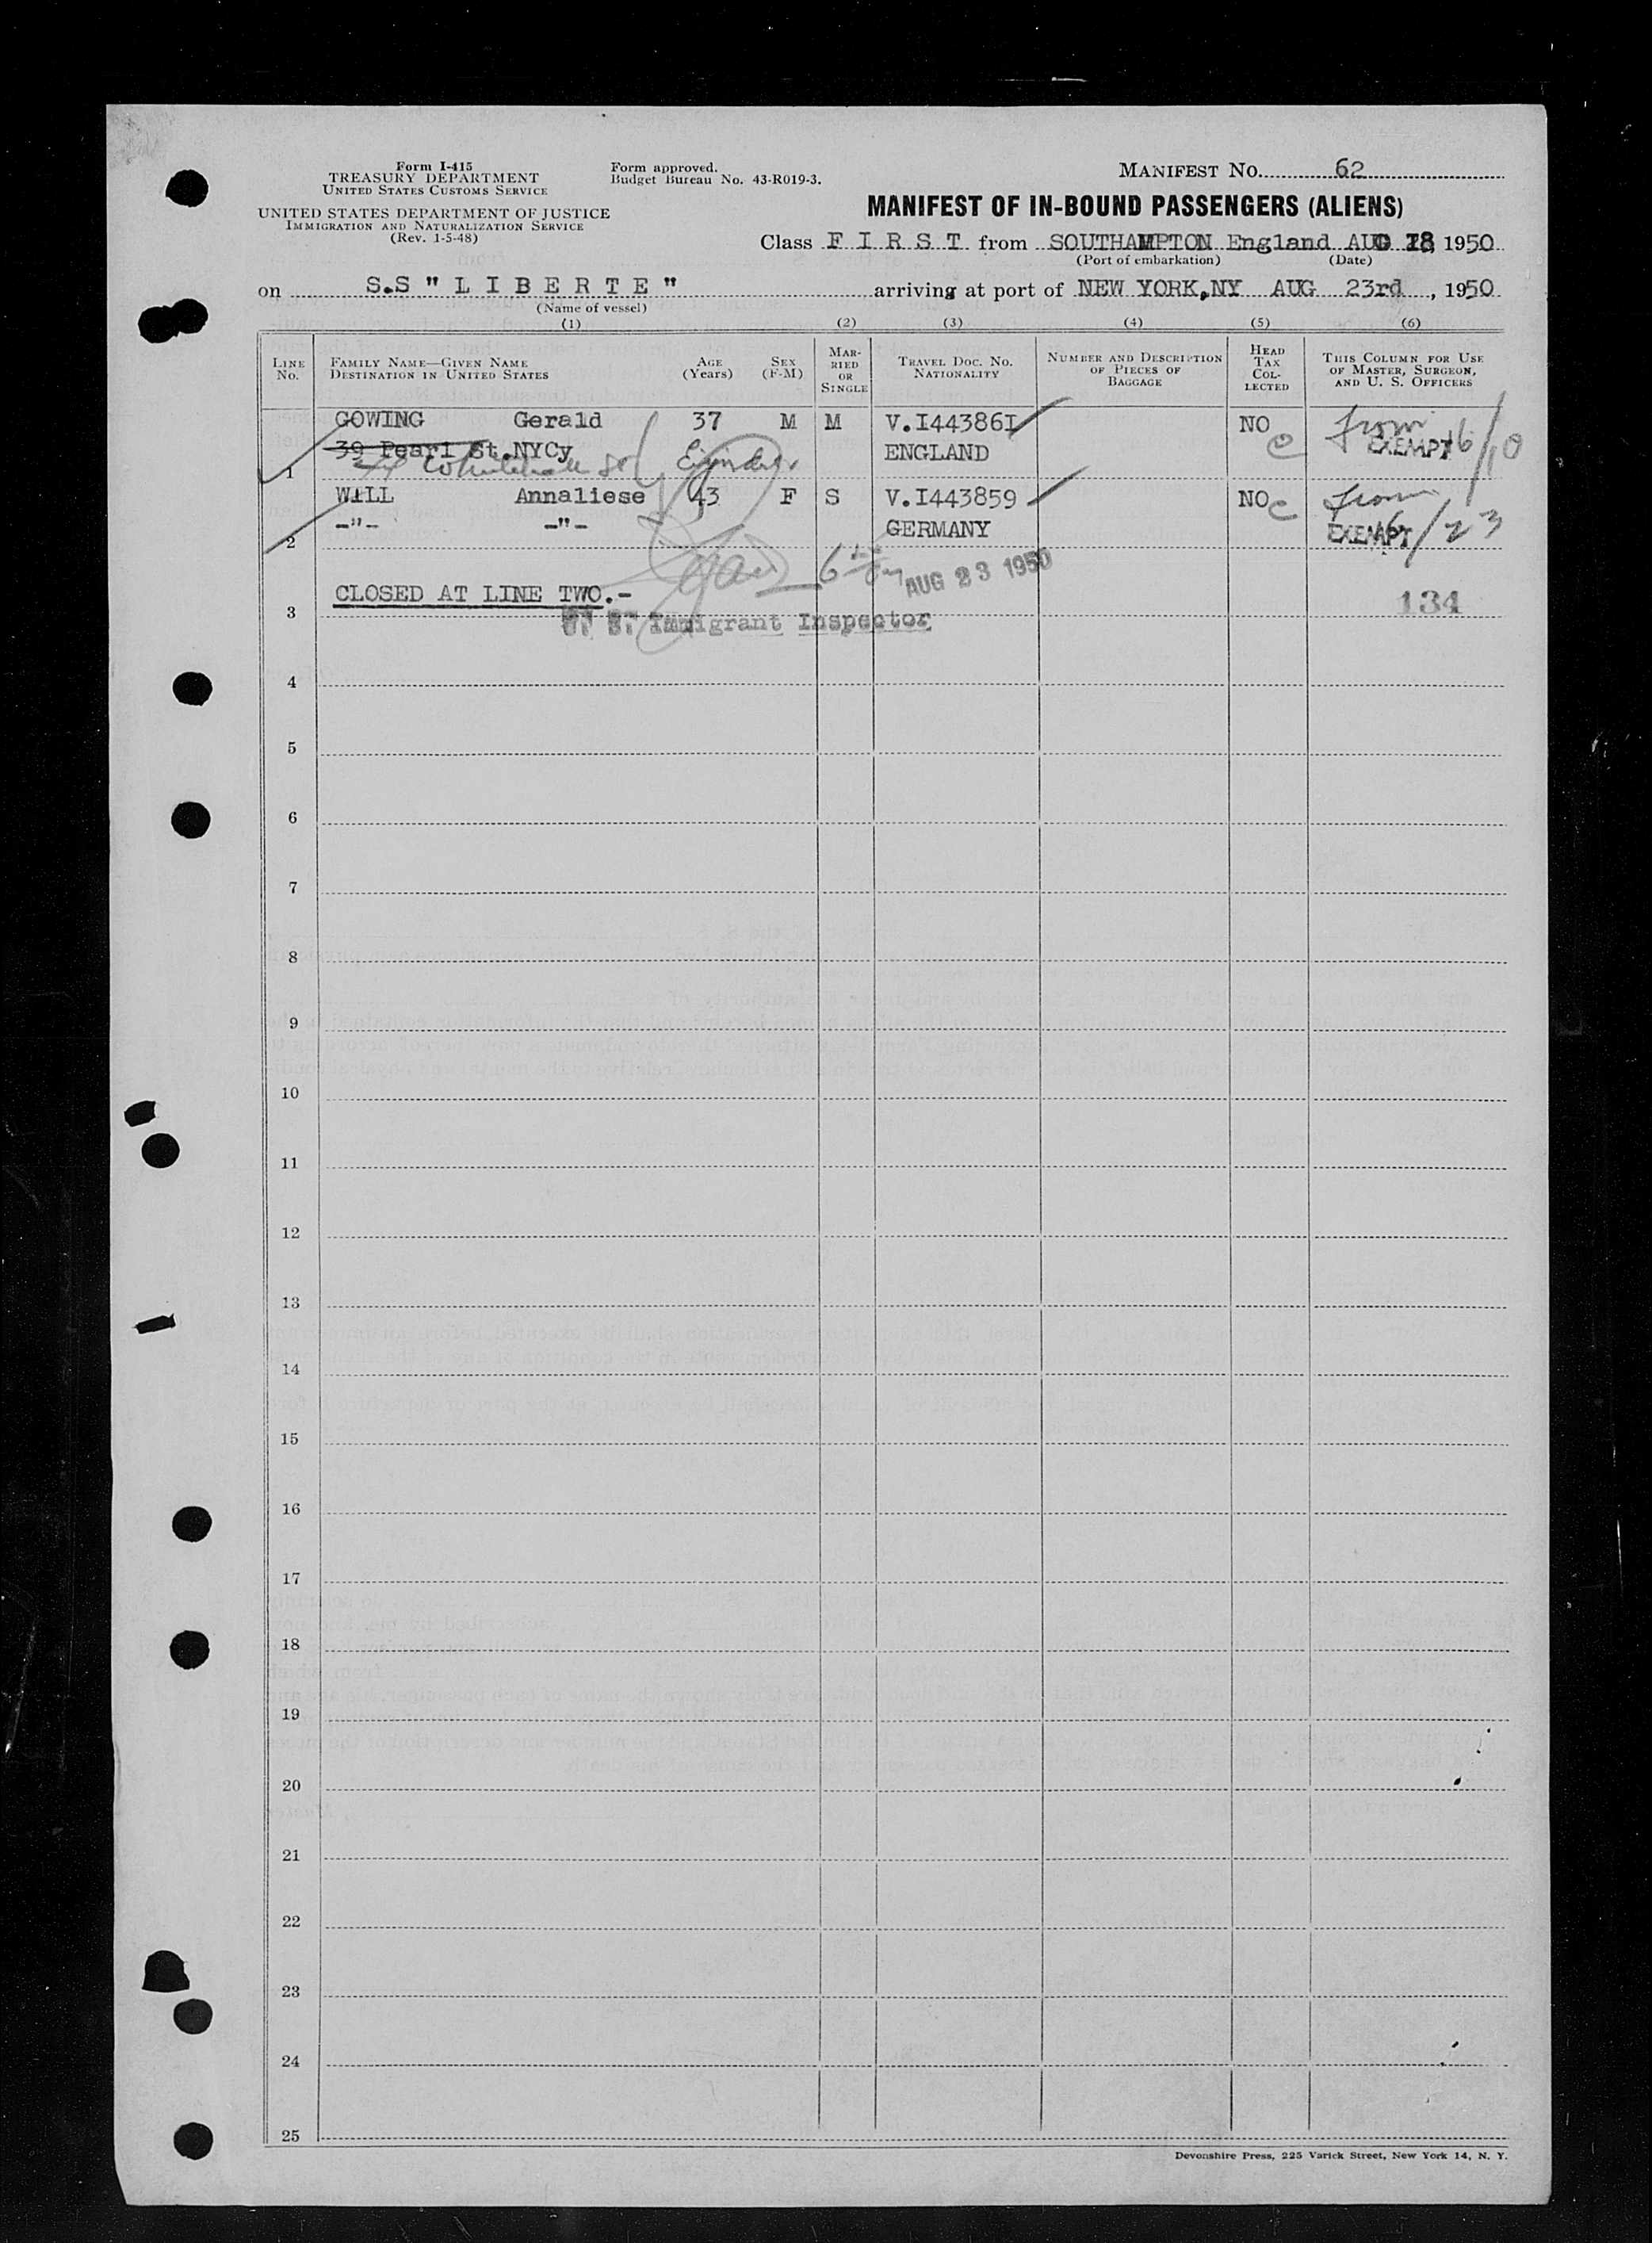 Form I-415
TREASURY DEPARTMENT
UNITED STATES CUSTOMS SERVICE
UNITED STATES DEPARTMENT OF JUSTICE
IMMIGRATION AND NATURALIZATION SERVICE
(Rev. 1-5-48)
Form approved.
Budget Bureau No. 43-R019-3.
MANIFEST No. 62
MANIFEST OF IN-BOUND PASSENGERS (ALIENS)
Class F I R S T from SOUTHAMPTON England AUG 18, 1950
(Port of embarkation) (Date)
on S.S " L I B E R T E " arriving at port of NEW YORK,NY AUG 23rd, 1950
(Name of vessel)
(1) (2) (3) (4) (5) (6)
LINE No.
FAMILY NAME—GIVEN NAME
DESTINATION IN UNITED STATES
AGE (Years)
SEX (F-M)
MARRIED OR SINGLE
TRAVEL DOC. NO.
NATIONALITY
NUMBER AND DESCRIPTION OF PIECES OF BAGGAGE
HEAD TAX COLLECTED
THIS COLUMN FOR USE OF MASTER, SURGEON, AND U. S. OFFICERS
GOWING Gerald 37 M M V.I44386I NO from
39 Pearl St.NYCy ENGLAND EXEMPT 6/10
1
WILL Annaliese 43 F S V.I443859 NO from
-"- -"- GERMANY EXEMPT 6/23
2
AUG 23 1950
CLOSED AT LINE TWO.- 134
3
U. S. Immigrant Inspector
4
5
6
7
8
9
10
11
12
13
14
15
16
17
18
19
20
21
22
23
24
25
Devonshire Press, 225 Varick Street, New York 14, N. Y.